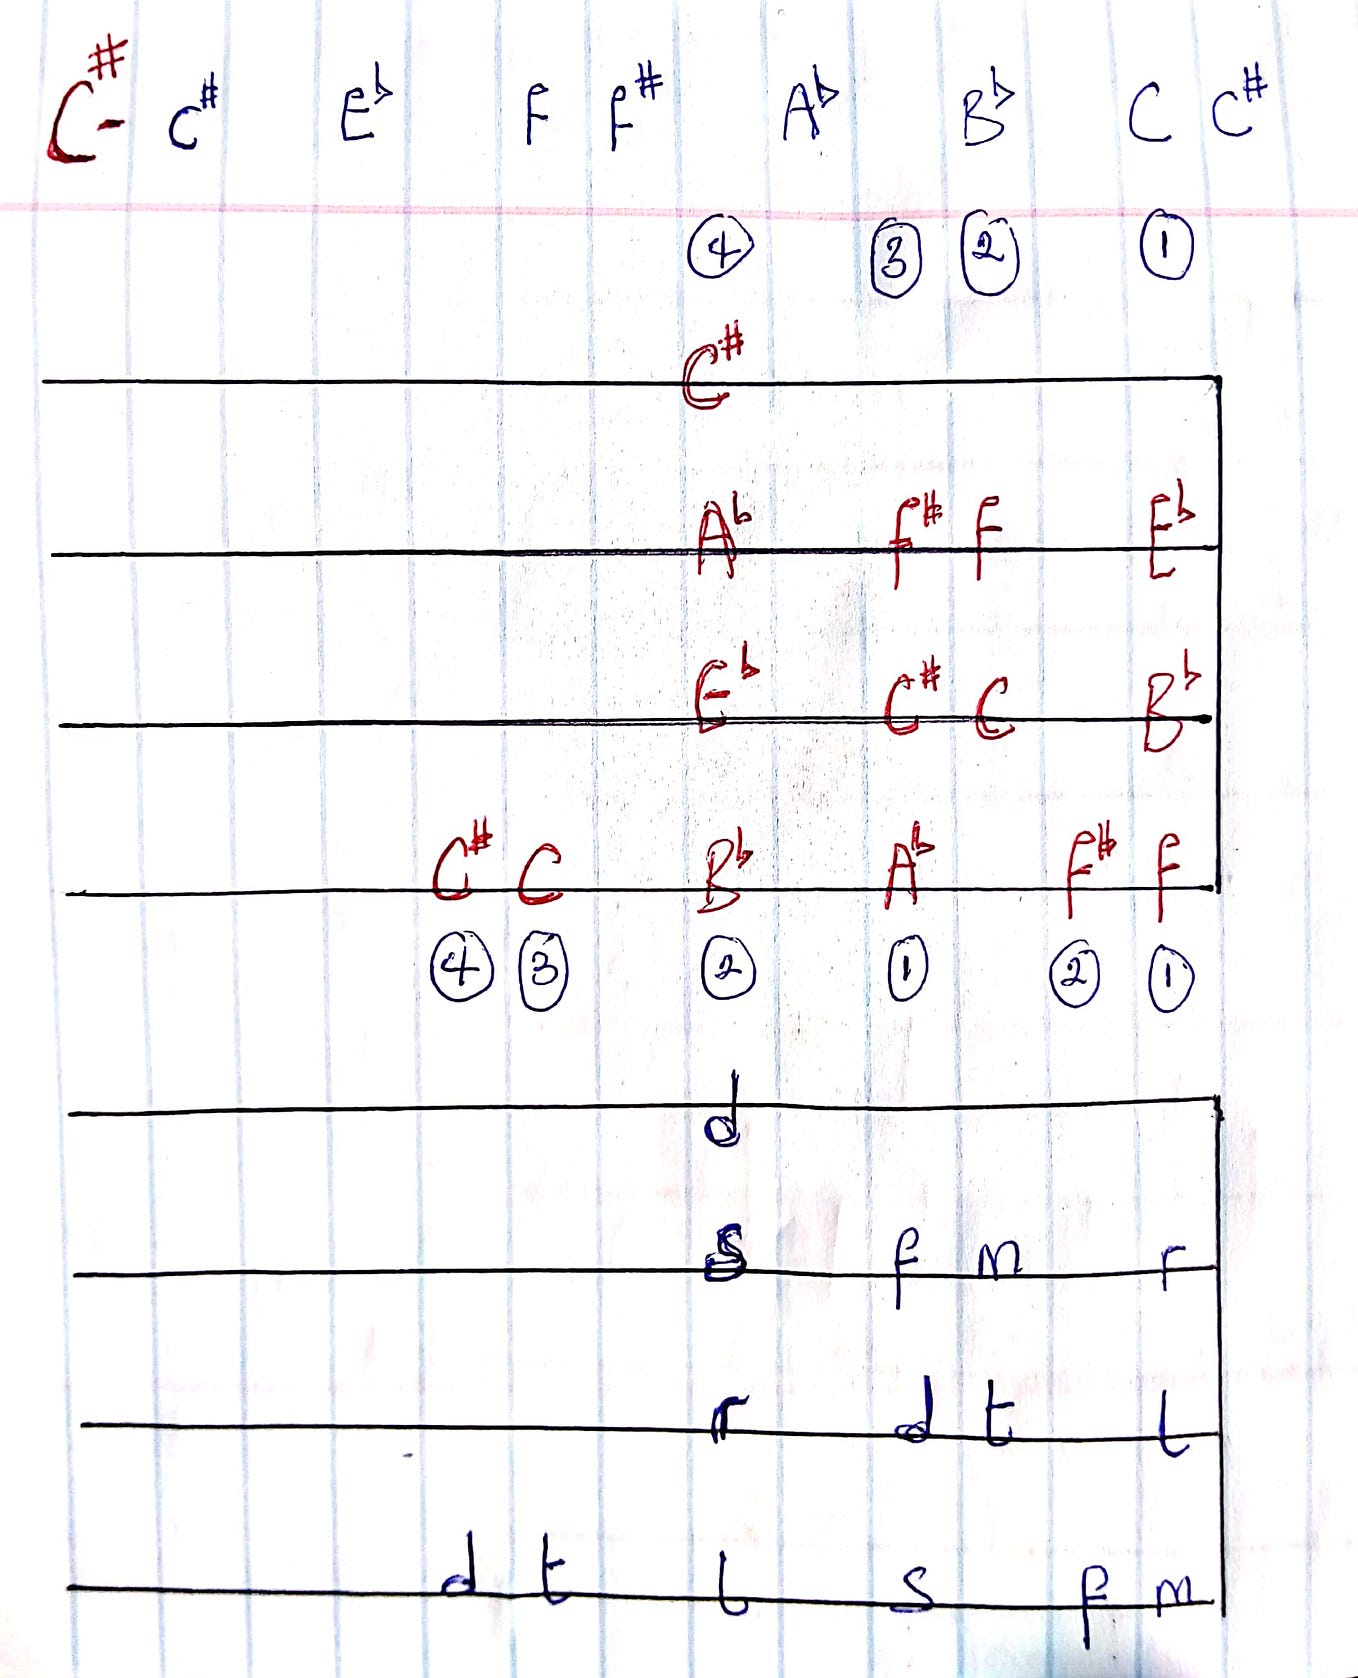 C# - C# E♭ F F# A♭ B♭ C C#
④ ③ ② ①
C#
A♭ F# F E♭
E♭ C# C B♭
C# C B♭ A♭ F# F
④ ③ ② ① ② ①
d
s f m r
r d t l
d t l s f m